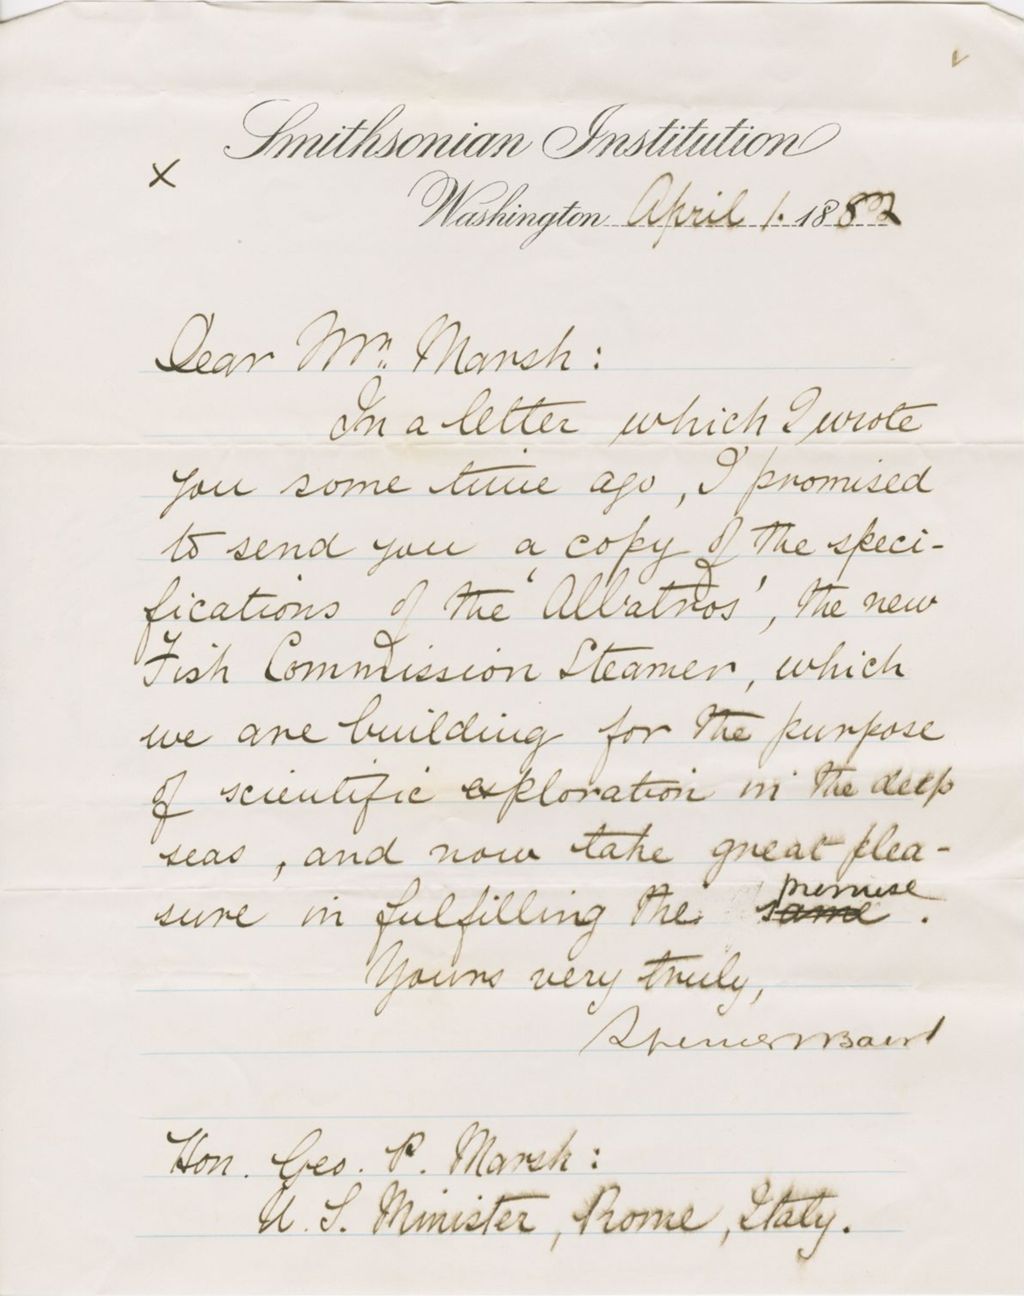 Smithsonian Institution
x
Washington April 1. 1882
Dear Mr. Marsh:
In a letter which I wrote
you some time ago, I promised
to send you a copy of the speci-
fications of the 'Albatros', the new
Fish Commission Steamer, which
we are building for the purpose
of scientific exploration in the deep
seas, and now take great plea-
sure in fulfilling the same promise.
Yours very truly,
Spencer F Baird
Hon. Geo. P. Marsh:
U. S. Minister, Rome, Italy.